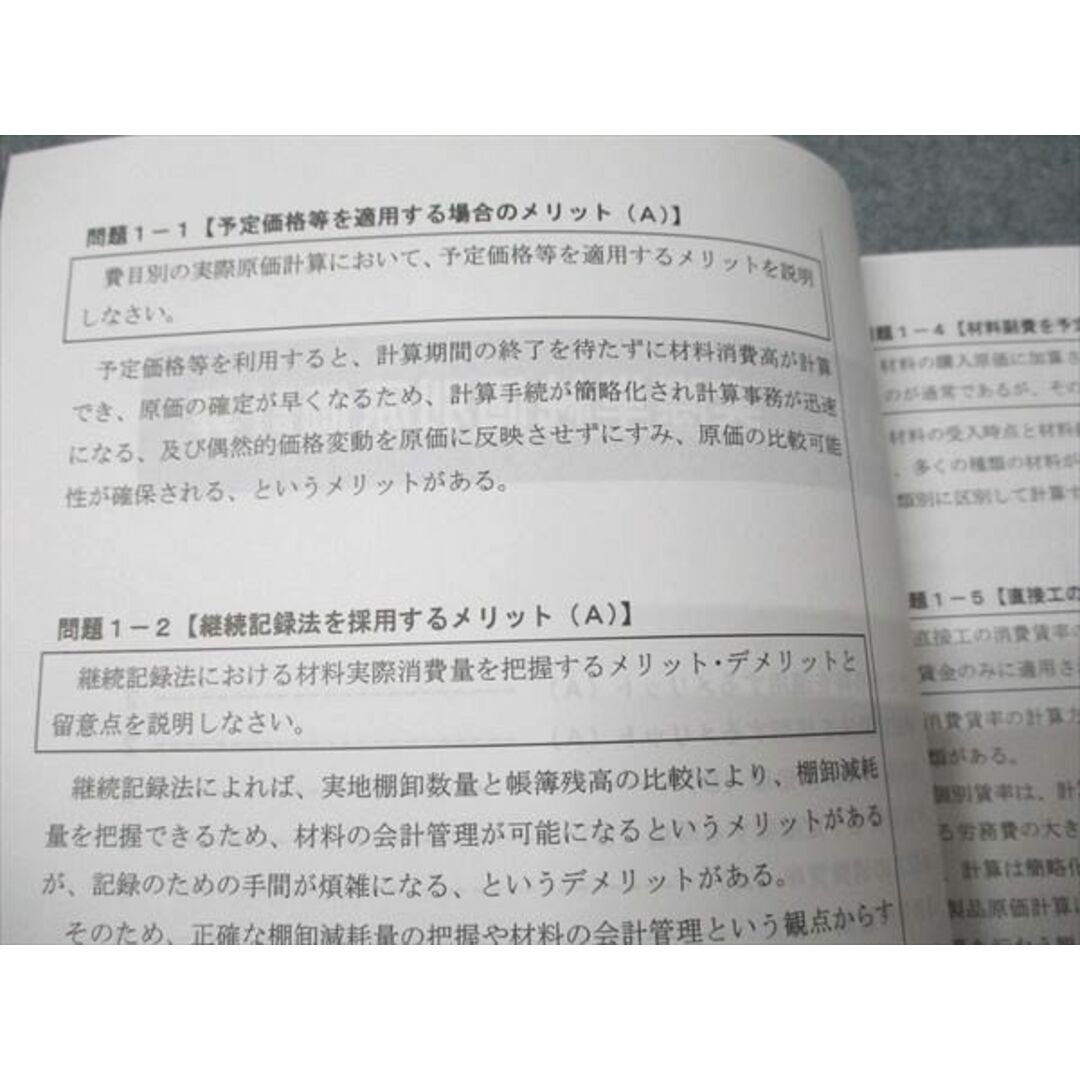 問題1-1【予定価格等を適用する場合のメリット（A）】
費目別の実際原価計算において、予定価格等を適用するメリットを説明
しなさい。
予定価格等を利用すると、計算期間の終了を待たずに材料消費高が計算
でき、原価の確定が早くなるため、計算手続が簡略化され計算事務が迅速
になる、及び偶然的価格変動を原価に反映させずにすみ、原価の比較可能
性が確保される、というメリットがある。
問題1-2【継続記録法を採用するメリット（A）】
継続記録法における材料実際消費量を把握するメリット・デメリットと
留意点を説明しなさい。
継続記録法によれば、実地棚卸数量と帳簿残高の比較により、棚卸減耗
量を把握できるため、材料の会計管理が可能になるというメリットがある
が、記録のための手間が煩雑になる、というデメリットがある。
そのため、正確な棚卸減耗量の把握や材料の会計管理という観点からす
題1-4【材料副費を予定
材料の購入原価に加算さ
のが通常であるが、その
材料の受入時点と材料
、多くの種類の材料が
類別に区別して計算す
題1-5【直接工の
直接工の消費賃率の
賃金のみに適用さ
消費賃率の計算方
類がある。
個別賃率は、計算
る労務費の大き
、計算は簡略化
製品原価計算に